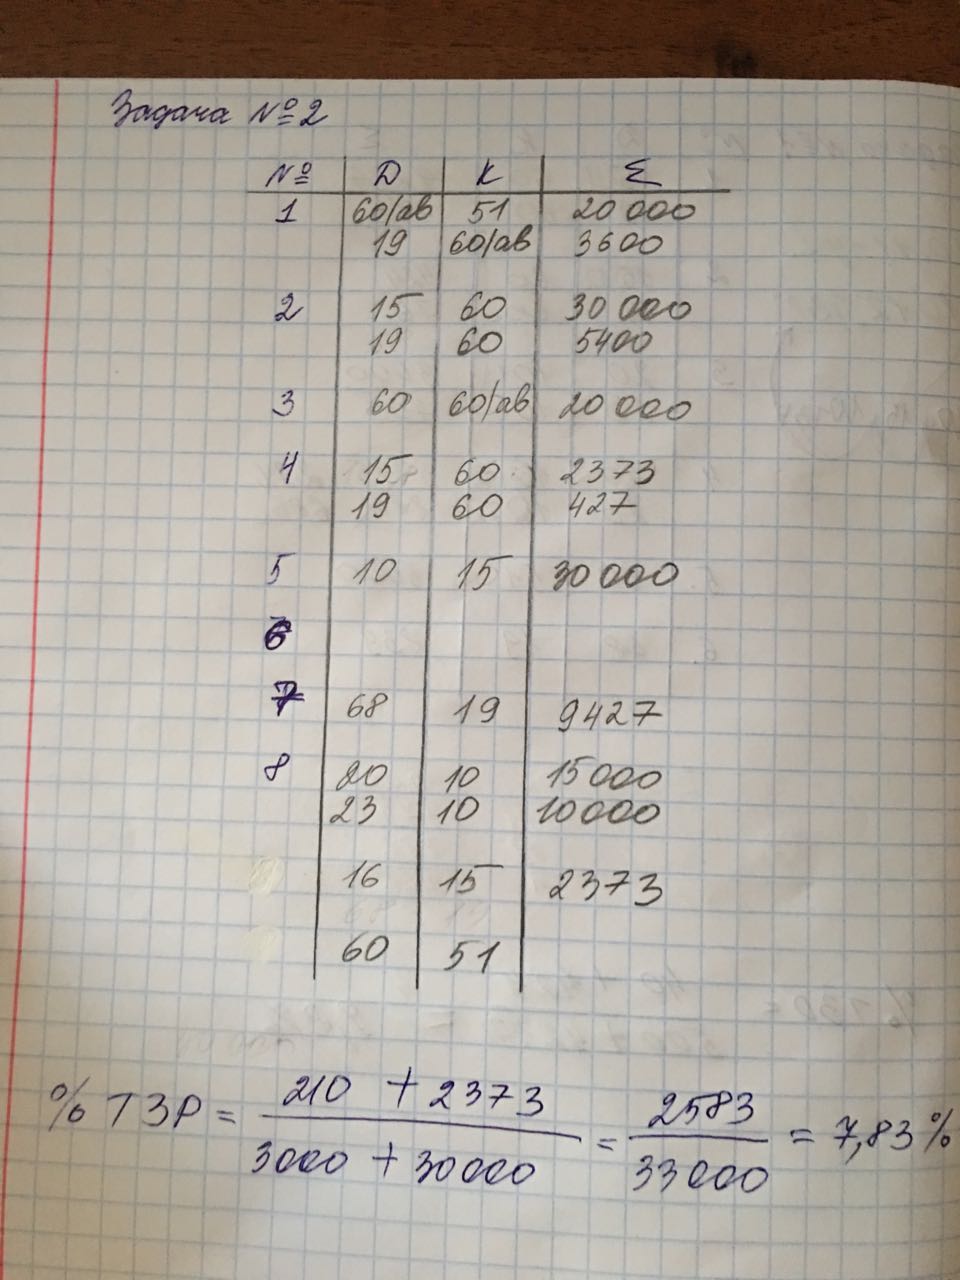 Задача №2
№ Д К Σ
1 60/ав 51 20 000
19 60/ав 3600
2 15 60 30 000
19 60 5400
3 60 60/ав 20 000
4 15 60 2373
19 60 427
5 10 15 30 000
6
7 68 19 9427
8 20 10 15 000
23 10 10 000
16 15 2373
60 51
% ТЗР = 210 + 2373 / 3000 + 30000 = 2583 / 33000 = 7,83%